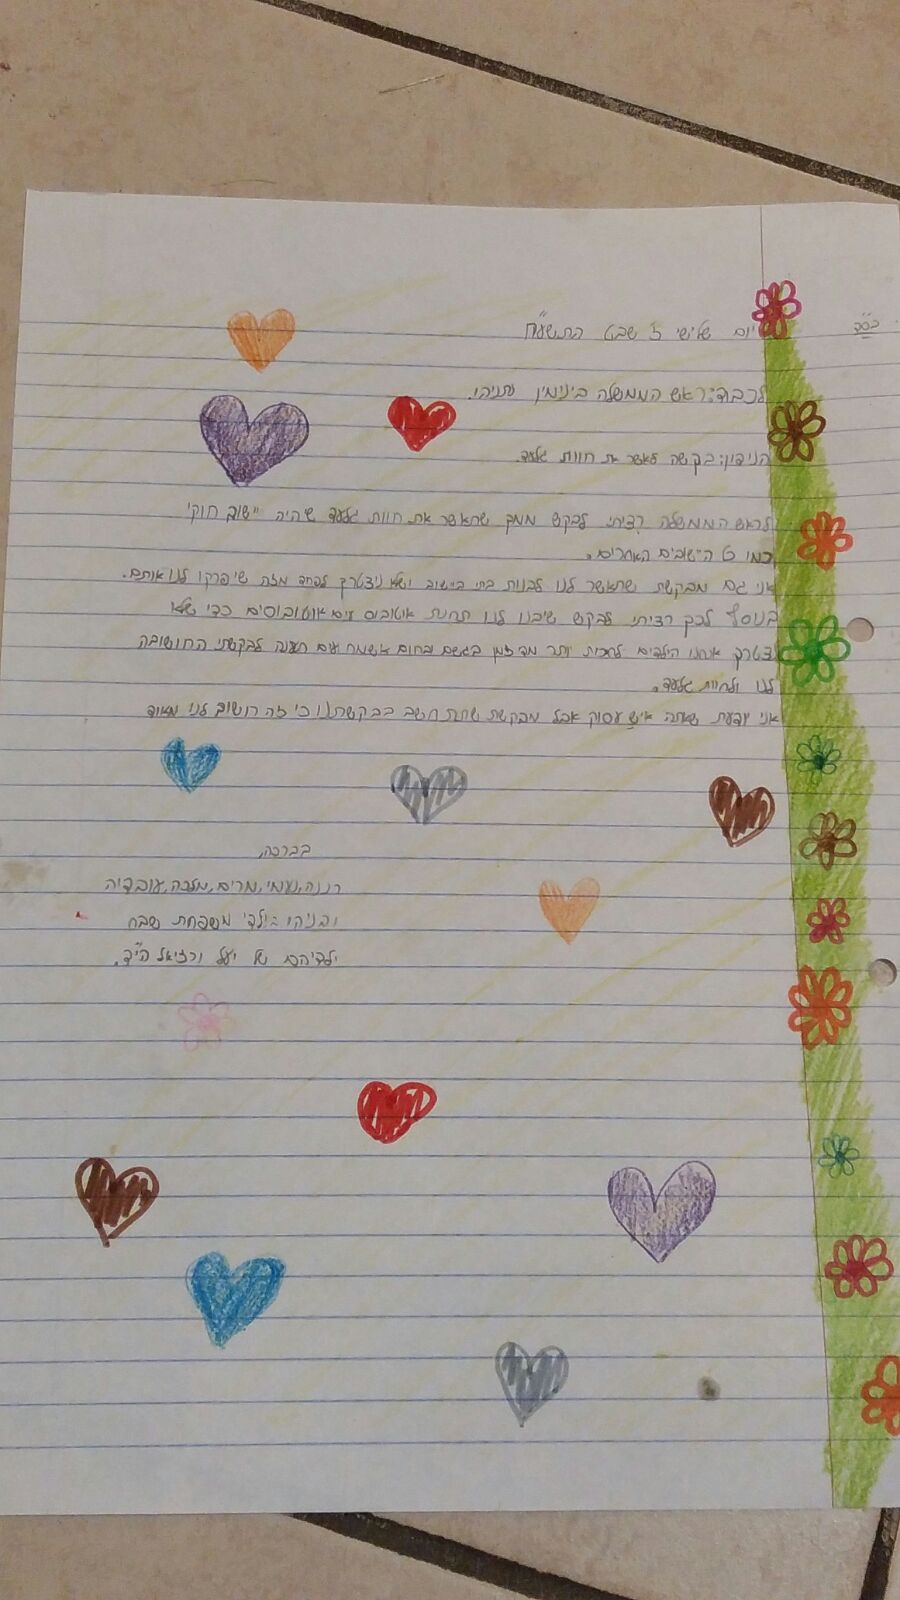 בס"ד
יום שלישי ז' שבט התשע"ח
לכבוד: ראש הממשלה בינימין נתניהו.
הנידון: בקשה לאשר את חוות גלעד.
לראש הממשלה רציתי לבקש ממך שתאשר את חוות גלעד שיהיה יישוב חוקי
כמו כל היישובים האחרים.
אני גם מבקשת שתאשר לנו לבנות בתי ביישוב ושלא ניצטרך לפחד מזה שיפרקו לנו אותם.
בנוסף לכך רציתי לבקש שיבנו לנו תחנת אוטובוס עים אוטובוסים כדי שלא
נצטרך אנחנו הילדים לחכות יותר מדי זמן בגשם ובחום אשמח עים תענה לבקשתי החושיבה
לנו ולחוות גלעד.
אני יודעת שאתה איש עסוק אבל מבקשת שתתחשב בבקשתנו כי זה חושוב לני מאוד
בברכה,
רננה, נעמי, מרים, מלכה, עובדיה
ובניהו ילדי משפחת שבח
ילדיהם של יעל ורזיאל הי"ד.